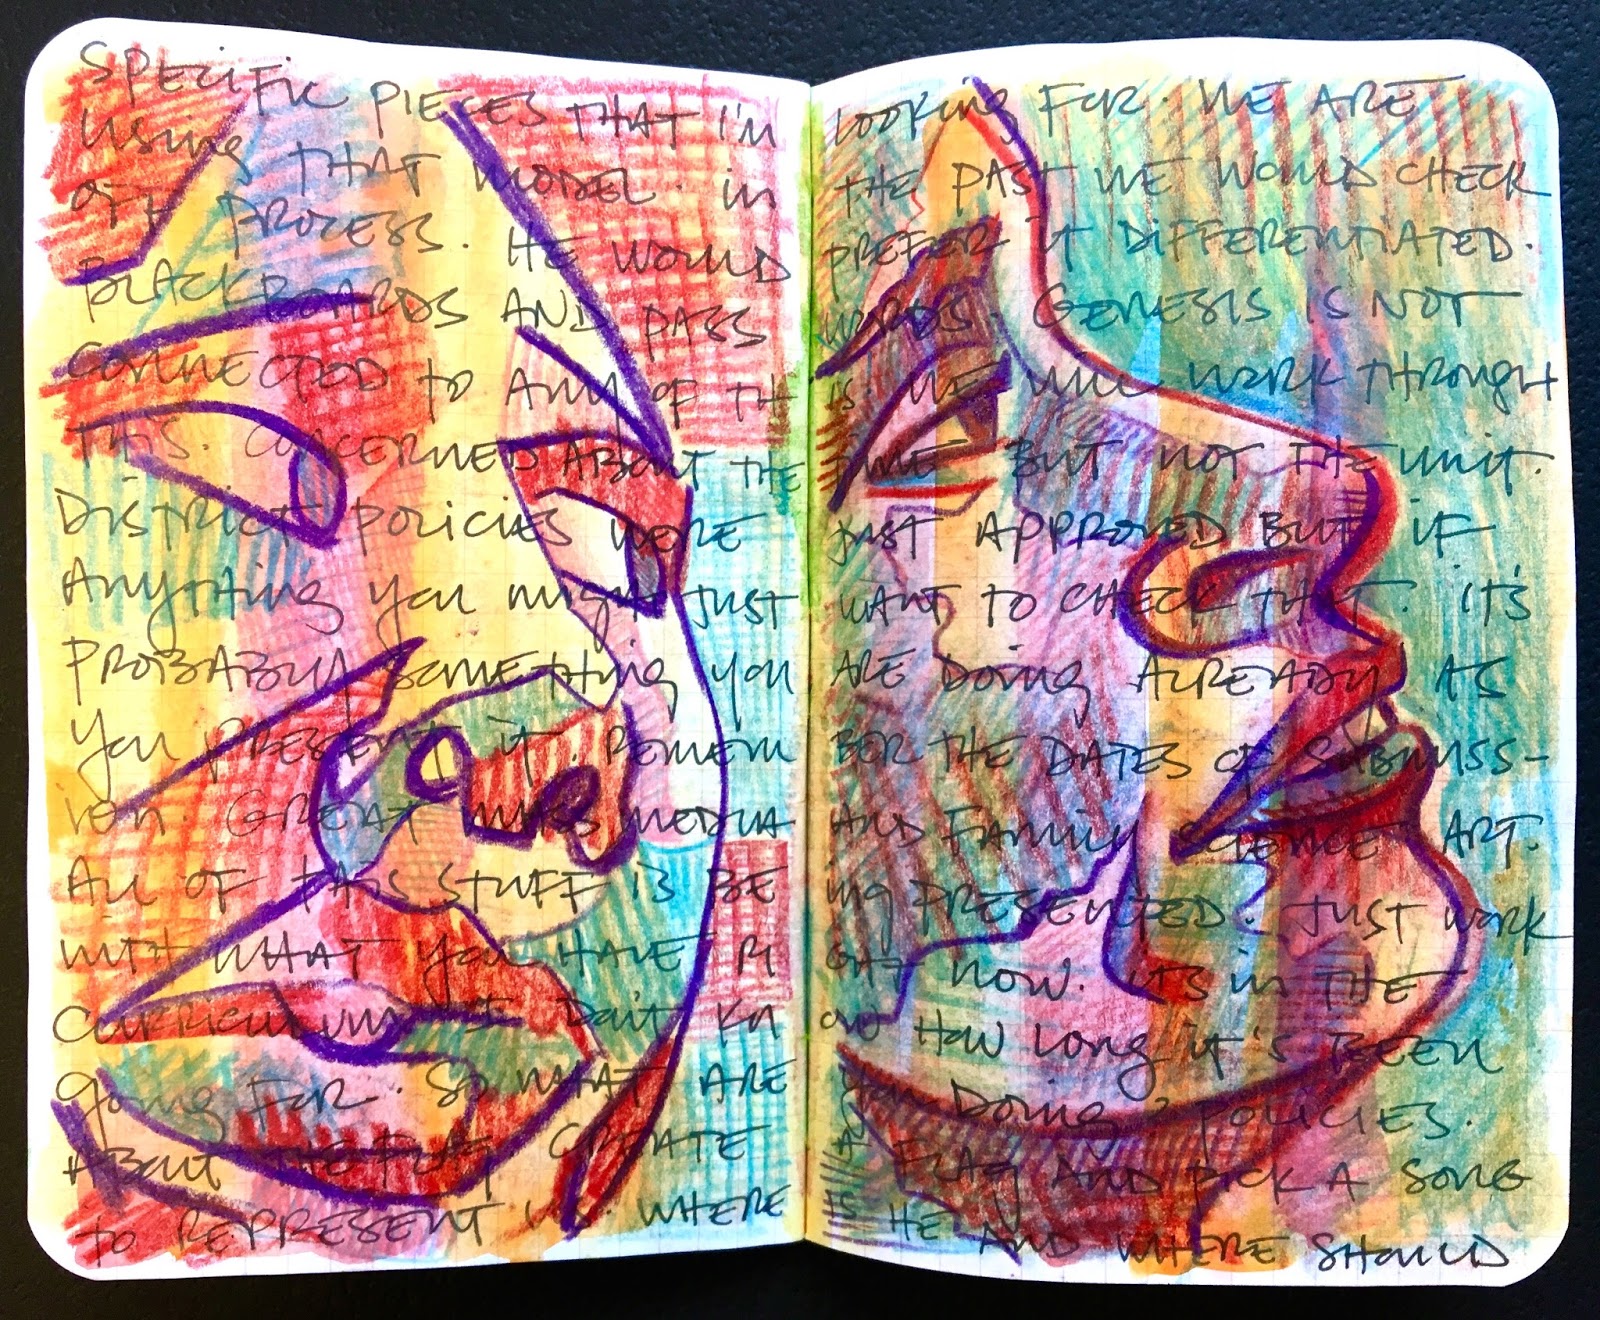 SPECIFIC PIECES THAT I'M LOOKING FOR. WE ARE
USING THAT MODEL. IN THE PAST WE WOULD CHECK
OFF PROCESS. HE WOULD PREFER IT DIFFERENTIATED.
BLACKBOARDS AND PASS WORDS GENESIS IS NOT
CONNECTED TO ANY OF TH IS. WE WILL WORK THROUGH
THIS. CONCERNED ABOUT THE TIME BUT NOT THE UNIT.
DISTRICT POLICIES WERE JUST APPROVED BUT IF
ANYTHING YOU MIGHT JUST WANT TO CHECK THAT. IT'S
PROBABLY SOMETHING YOU ARE DOING ALREADY AS
YOU PRESENT IT. REMEM BER THE DATES OF SUBMISS-
ION. GREAT MASS MEDIA AND FAMILY SCIENCE ART.
ALL OF THIS STUFF IS BE ING PRESENTED. JUST WORK
WITH WHAT YOU HAVE RI GHT NOW. IT'S IN THE
CURRICULUM I DON'T KN OW HOW LONG IT'S BEEN
GOING FOR. SO WHAT ARE YOU DOING? POLICIES.
ABOUT THE CREATE A FLAG AND PICK A SONG
TO REPRESENT US. WHERE IS HE AND WHERE SHOULD